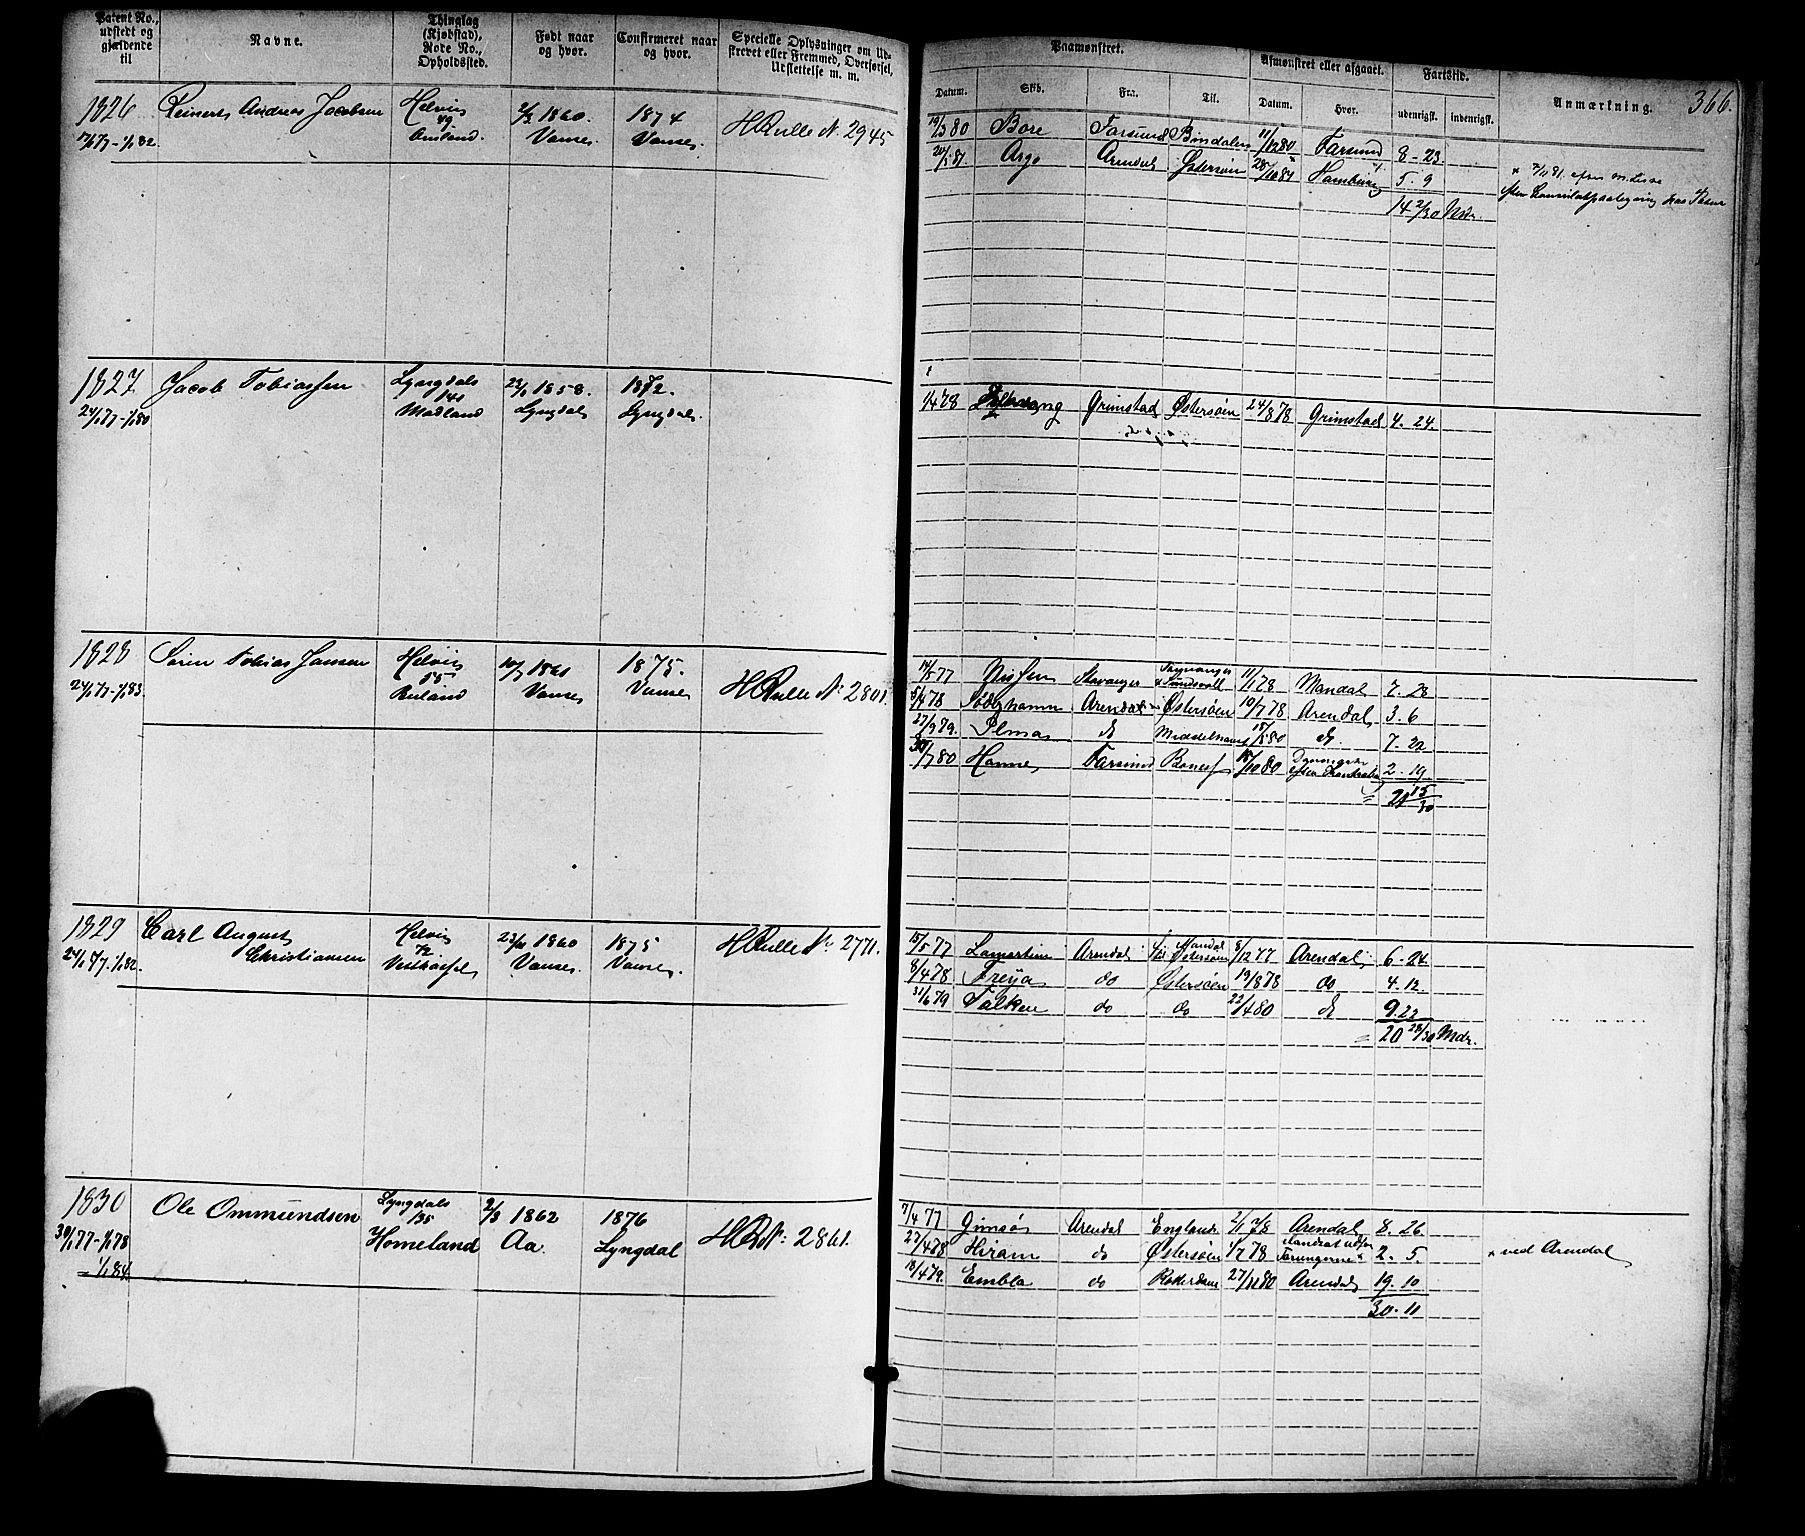 Patent No., udstedt og gjældende til
Navne.
Thinglag (Kjøbstad), Rode No., Opholdssted.
Født naar og hvor.
Confirmeret naar og hvor.
Specielle Oplysninger om Udskrevet eller Fremmed, Overførsel, Udslettelse m. m.
Paamønstret.
Afmønstret eller afgaaet.
Fartstid.
Anmærkning.
366.
Datum.
Skib.
Fra.
Til.
Datum.
Hvor.
udenrigsk.
indenrigsk.
1826 Reinert Andreas Jacobsen Helvig 2/3 1860. 1874 HRulle N. 2945
49
Vanse. Vanse.
19/3 80 Bore Farsund Bindalen 11/12 80 Farsund 8-23
20/5 81 Argo Arendal Østersøen 28/10 81 Hamburg 5.9
14 2/30 Mdr.
1827 Jacob Tobiassen Lyngdals 22/1 1858. 1872.
141
24/1 77-1/1 80 Madland Lyngdal Lyngdal.
1/4 78 Grimstad Østersøen 24/8 78 Grimstad 4. 24.
1828 Søren Tobias Jansen Helvig 10/7 1861 1875. HRulle N. 2801.
55
24/1 77-1/1 83. Vanse Vanse
14/5 77 Nissen Stavanger & Sundsvall 11/1 78 Mandal 7. 28
5/4 78 Søderhamn Arendal Østersøen 10/7 78 Arendal 3. 6
27/9 79. Elma do Middelhavet 15/5 80 do. 7. 22
30/7 80 Hanne Farsund 18/10 80 2. 19
21 15/30
1829 Carl August Christiansen Helvig 23/11 1860 1875 HRulle No. 2771.
72
24/1 77-1/1 82. Vesthassel Vanse. Vanse.
15/5 77 Lamartine Arendal Mandal Østersøen 8/12 77 Arendal 6-24
8/4 78 Freya do Østersøen 19/8 78 do 4. 12
31/6 79 Falken do do 22/4 80 do 9. 22
= 20 28/30 Mdr.
1830 Ole Ommundsen Lyngdals 2/3 1862 1876 HR N: 2861.
135
30/1 77-1/1 78 Homeland Aa. Lyngdal
= 1/1 84.
7/4 77 Gimsø Arendal England 2/1 78 Arendal 8. 26
27/4 78 Hiram do Østersøen 1/7 78 2. 5.
x ved Arendal
18/4 79. Embla do Rotterdam 27/11 80 Arendal 19. 10
30. 11